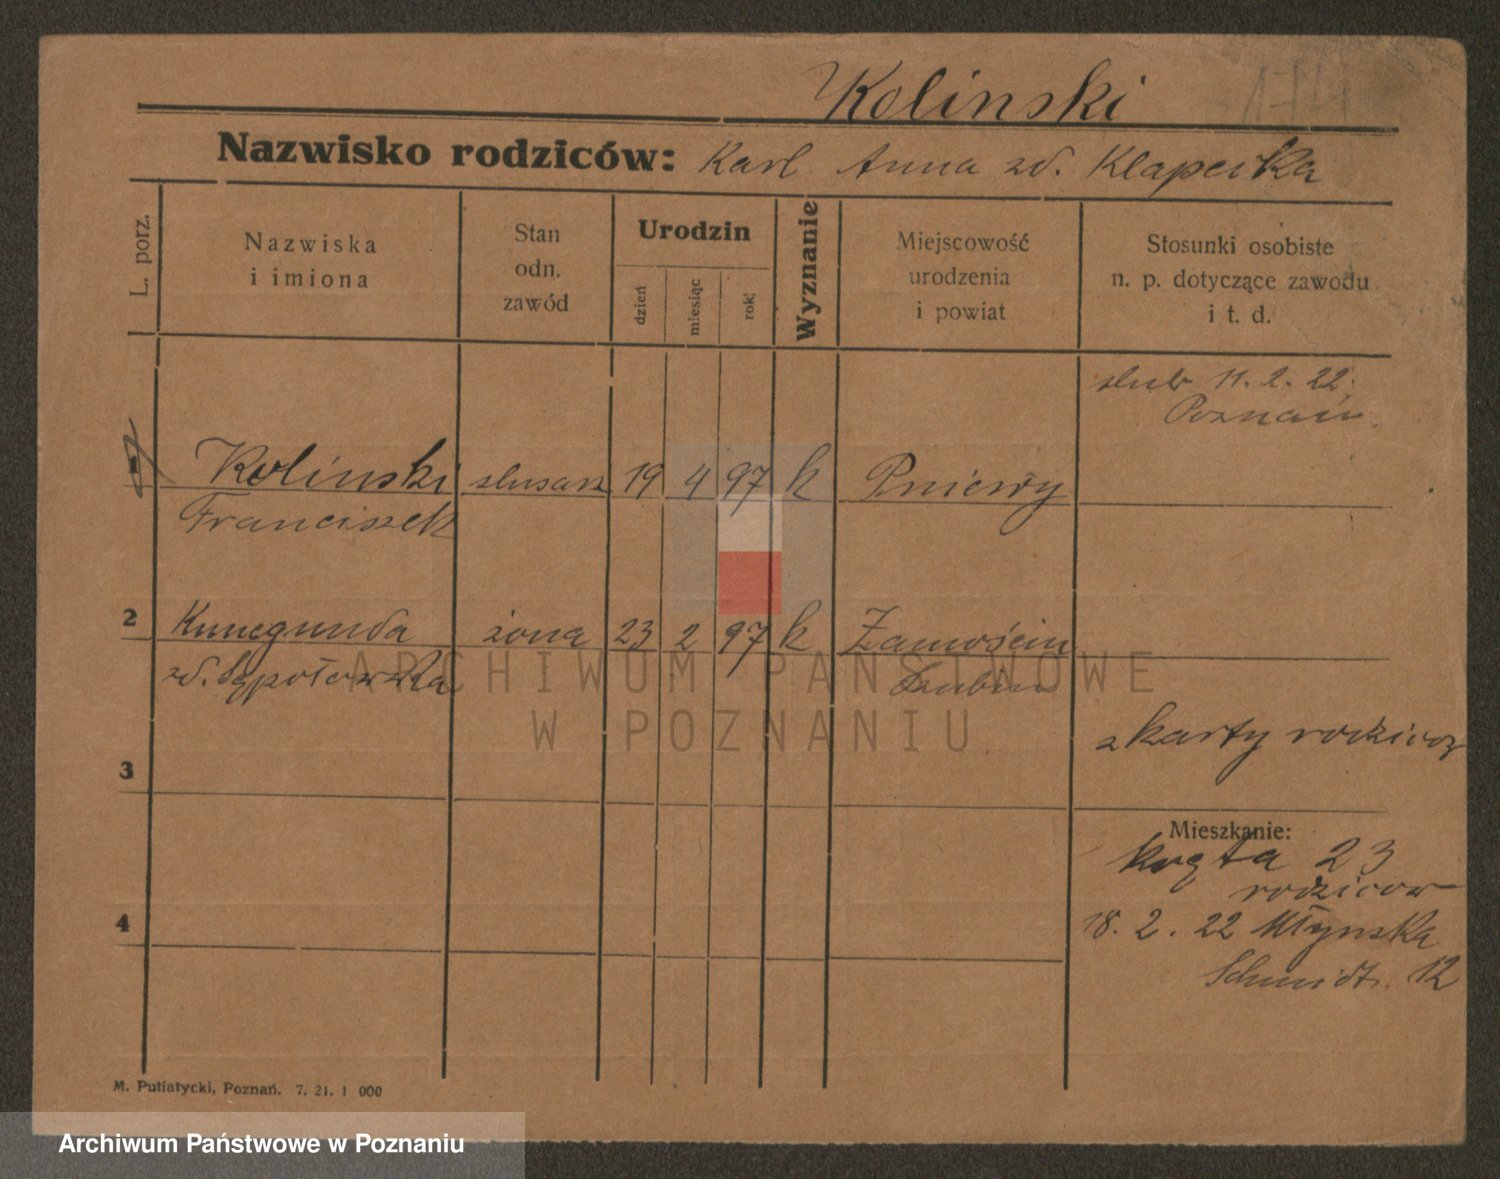 Kolinski
174
Nazwisko rodziców: Karl Anna zd. Klapecka
L. porz.
Nazwiska
i imiona
Stan
odn.
zawód
Urodzin
dzień
miesiąc
rok
Wyznanie
Miejscowość
urodzenia
i powiat
Stosunki osobiste
n. p. dotyczące zawodu
i t. d.
slub 11. 2. 22.
Poznań
1 Kolinski slusarz 19 4 97 k Pniewy
Franciszek
2 Kunegunda żona 23 2 97 k Zamościu
zd.
z karty rodzicow
3
Mieszkanie:
23
rodzicow
18. 2. 22 Młynska
Schmidt. 12
4
M. Putiatycki, Poznań. 7. 21. 1 000
ARCHIWUM PAŃSTWOWE
W POZNANIU
Archiwum Państwowe w Poznaniu